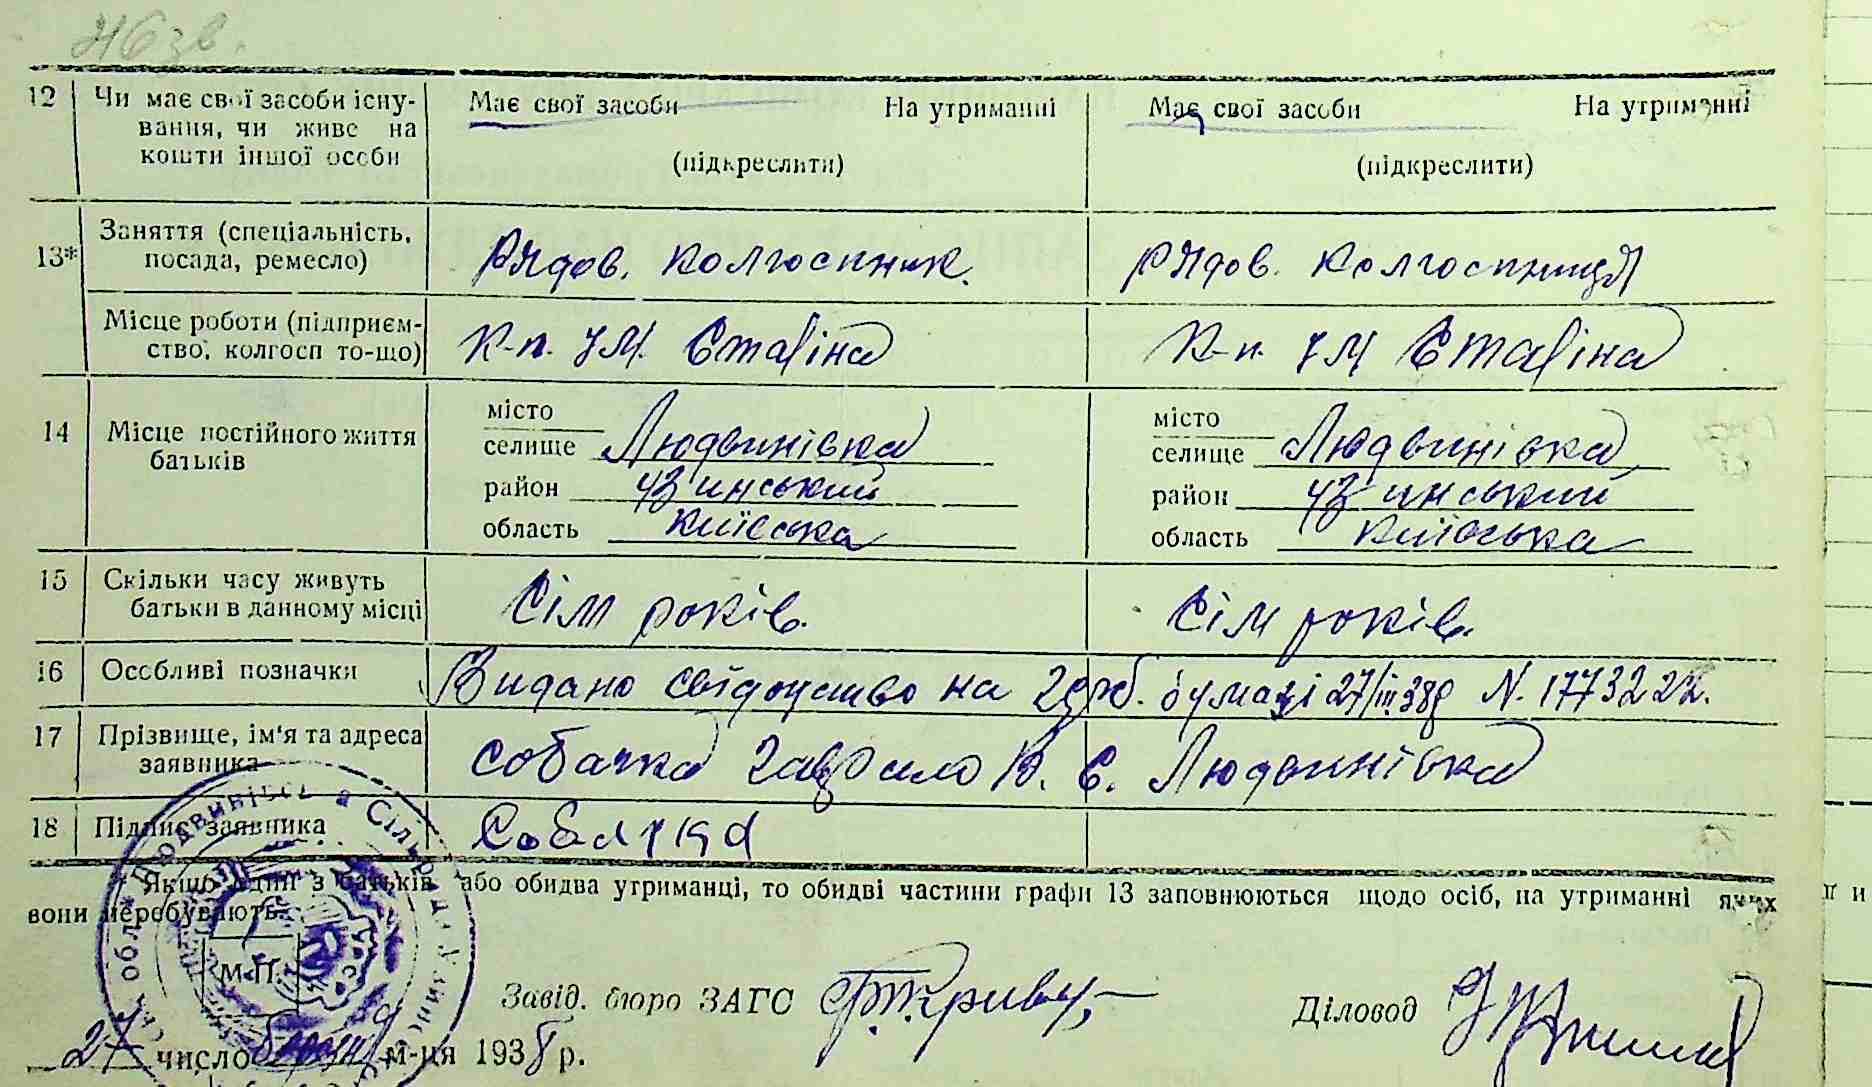 46 зв.
12 Чи має свої засоби існу- Має свої засоби На утриманні Має свої засоби На утриманні
вання, чи живе на
кошти іншої особи (підкреслити) (підкреслити)
13* Заняття (спеціальність, посада, ремесло) Рядов. колгоспник. рядов. колгоспниця
Місце роботи (підприєм- К-п. ім. Сталіна К-п. ім Сталіна
ство, колгосп то-що)
14 Місце постійного життя батьків місто місто
селище Людвинівка селище Людвинівка
район Узинський район Узинський
область Київська область Київська
15 Скільки часу живуть Сім років. Сім років.
батьки в данному місці
16 Особливі позначки Видано свідоцтво на держ. бумазі 27/III 38р N. 1773222.
17 Прізвище, ім'я та адреса Собачка Гаврило В. С. Людвинівка
заявника
18 Підпис заявника Собачка
* Якщо один з батьків або обидва утриманці, то обидві частини графи 13 заповнюються щодо осіб, на утриманні яких
вони перебувають.
М.П.
Завід. бюро ЗАГС Діловод
27 число м-ця 1938 р.